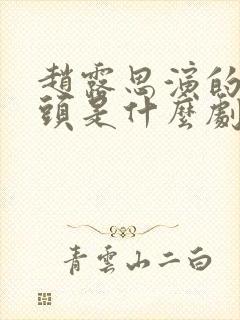 趙露思演的
頭是什麼劇
青雲山二白